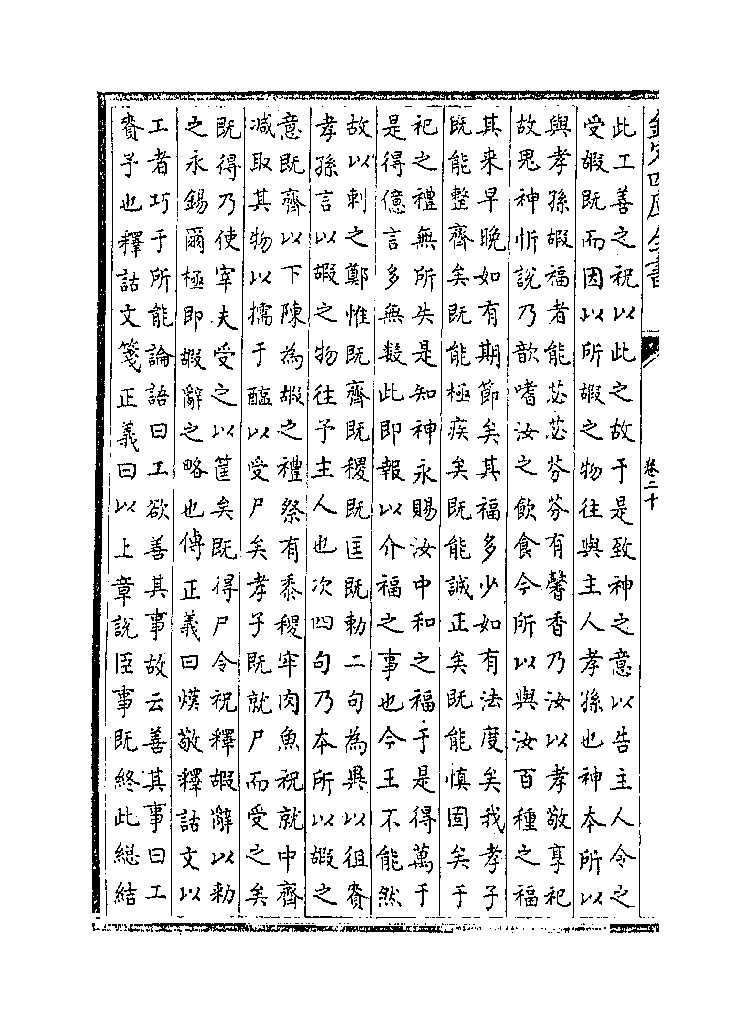 欽定四庫全書
卷二十
此工善之祝以此之故于是致神之意以告主人令之
受嘏既而因以所嘏之物往與主人孝孫也神本所以
與孝孫嘏福者能苾苾芬芬有馨香乃汝以孝敬享祀
故鬼神忻說乃歆嗜汝之飲食今所以與汝百種之福
其來早晚如有期節矣其福多少如有法度矣我孝子
既能整齊矣既能極疾矣既能誠正矣既能慎固矣于
祀之禮無所失是知神永賜汝中和之福于是得萬于
是得億言多無數此即報以介福之事也今王不能然
故以刺之鄭惟既齊既稷既匡既勅二句為異以徂賚
孝孫言以嘏之物往予主人也次四句乃本所以嘏之
意既齊以下陳為嘏之禮祭有黍稷牢肉魚祝就中齊
減取其物以擩于醢以受尸矣孝子既就尸而受之矣
既得乃使宰夫受之以筐矣既得尸令祝釋嘏辭以勅
之永錫爾極即嘏辭之略也傳正義曰熯敬釋詁文以
工者巧于所能論語曰工欲善其事故云善其事曰工
賚予也釋詁文箋正義曰以上章說臣事既終此總結